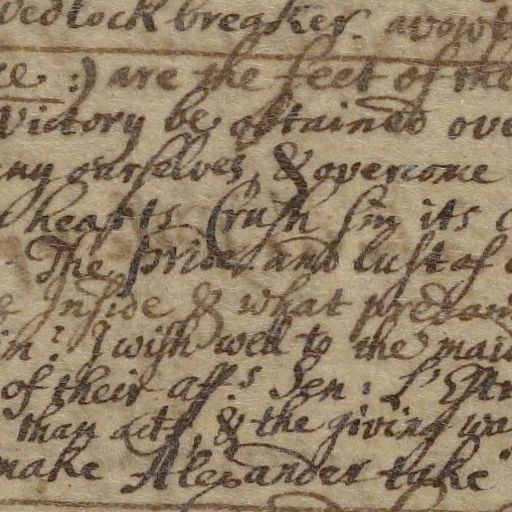 Wedlock breaker. avowt
ce :) are the feet of the
Victory be obtained ove
ny ourselves, & overcome
hearts. Crush sin its
The pride and lust of
Inside & what predom
in? I wish well to the maid
of their aff.s Sen: L'Estr
man acts, & the giving wa
make Alexander take